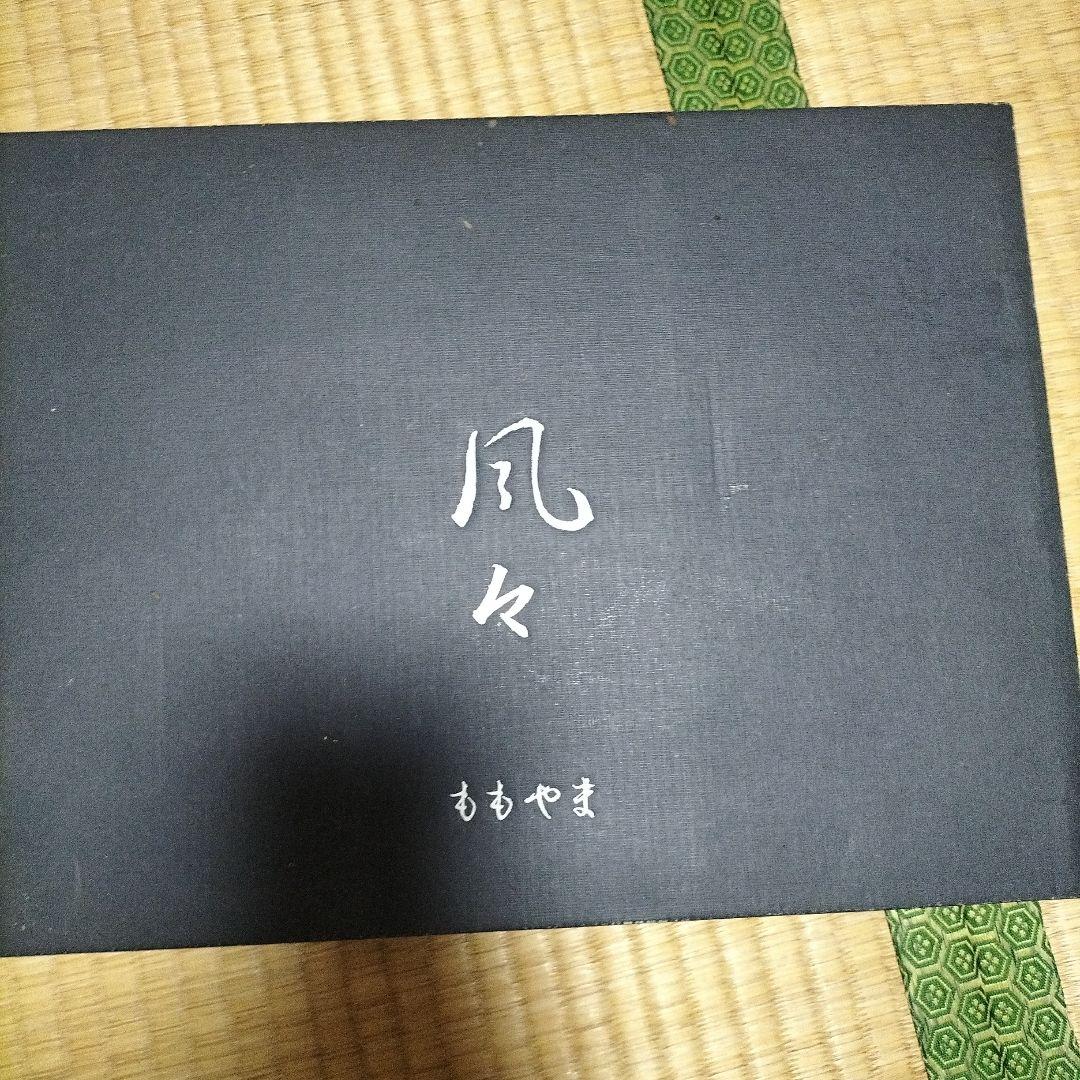 風々
ももやま